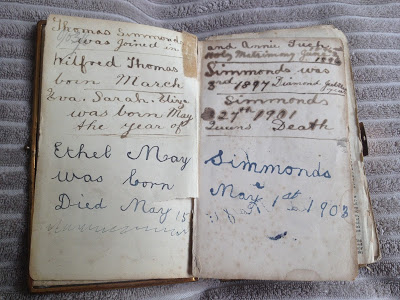 Thomas Simmonds
was Joined in
Wilfred Thomas
born March
Eva. Sarah. Eliza
was born May
the year of
Ethel May
was born
Died May 15
and Annie Pugh
Holy Matrimony
Simmonds was
3rd 1897 Diamond Jubilee
Simmonds
27th 1901
Queens Death
Simmonds
May 1st 1903